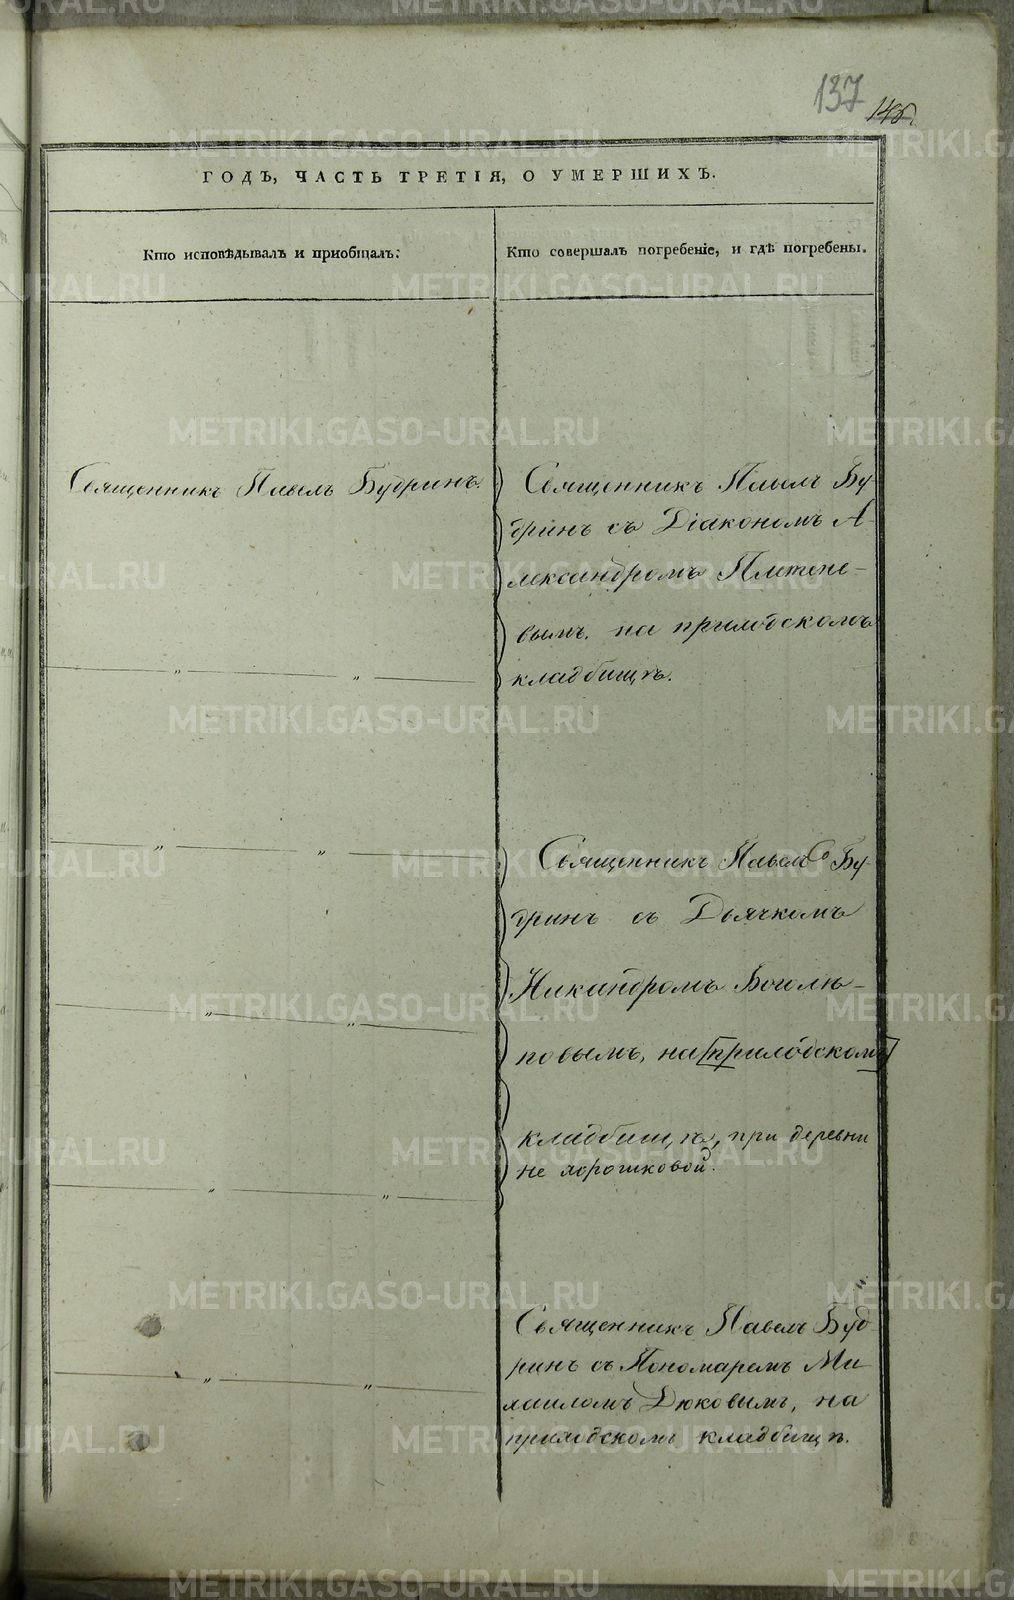 137
ГОДЪ, ЧАСТЬ ТРЕТІЯ, О УМЕРШИХЪ.
Кто исповѣдывалъ и пріобщалъ:
Кто совершалъ погребеніе, и гдѣ погребены.
Священникъ Павелъ Будринъ.
Священникъ Павелъ Бу-
дринъ съ Діакономъ А-
лександромъ Плетене-
вымъ, на приходскомъ
кладбищѣ.
Священникъ Павелъ Бу-
дринъ съ Дьячкомъ
Никандромъ Боголю-
повымъ, на приходскомъ
кладбищѣ, при деревни
не хорошковой.
Священникъ Павелъ Буд-
ринъ съ Пономаремъ Ми-
хаиломъ Дюковымъ, на
приходскомъ кладбищѣ.
METRIKI.GASO-URAL.RU